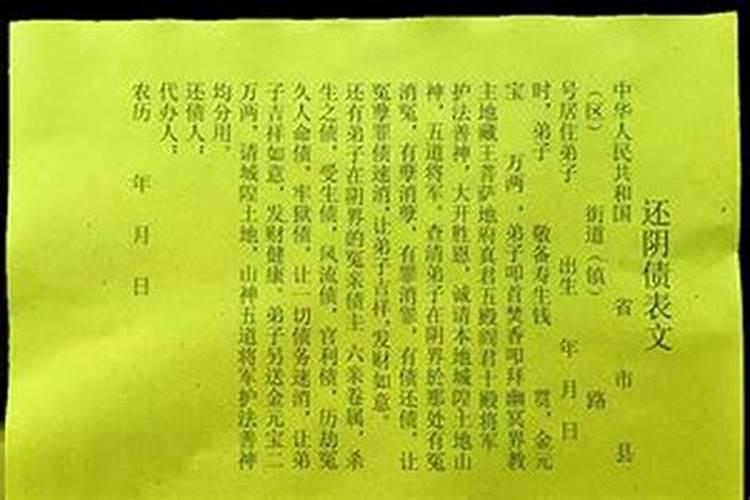 还阴债表文
中华人民共和国 省 市 县
（区） 街道（镇） 路
号居住弟子 出生 年 月 日
时，弟子 敬备寿生钱 贯，金元
宝 万两，弟子叩首焚香叩拜幽冥界教
主地藏王菩萨地府真君五殿阎君十殿将军
护法善神，大开胜恩，诚请本地城隍土地山
神，五道将军，查清弟子在阴界於那处有冤
消冤，有孽消孽，有罪消罪，有债还债，让
冤孽罪债速消，让弟子吉祥，发财如意。
还有弟子在阴界的冤亲债主，六亲卷属，杀
生之债，受生债，风流债，官利债，历劫冤
久人命债，牢狱债，让一切债务速消，让弟
子吉祥如意，发财健康，弟子另送金元宝二
万两，请城隍土地，山神五道将军护法善神
均分用。
还债人：
代办人：
农历 年 月 日